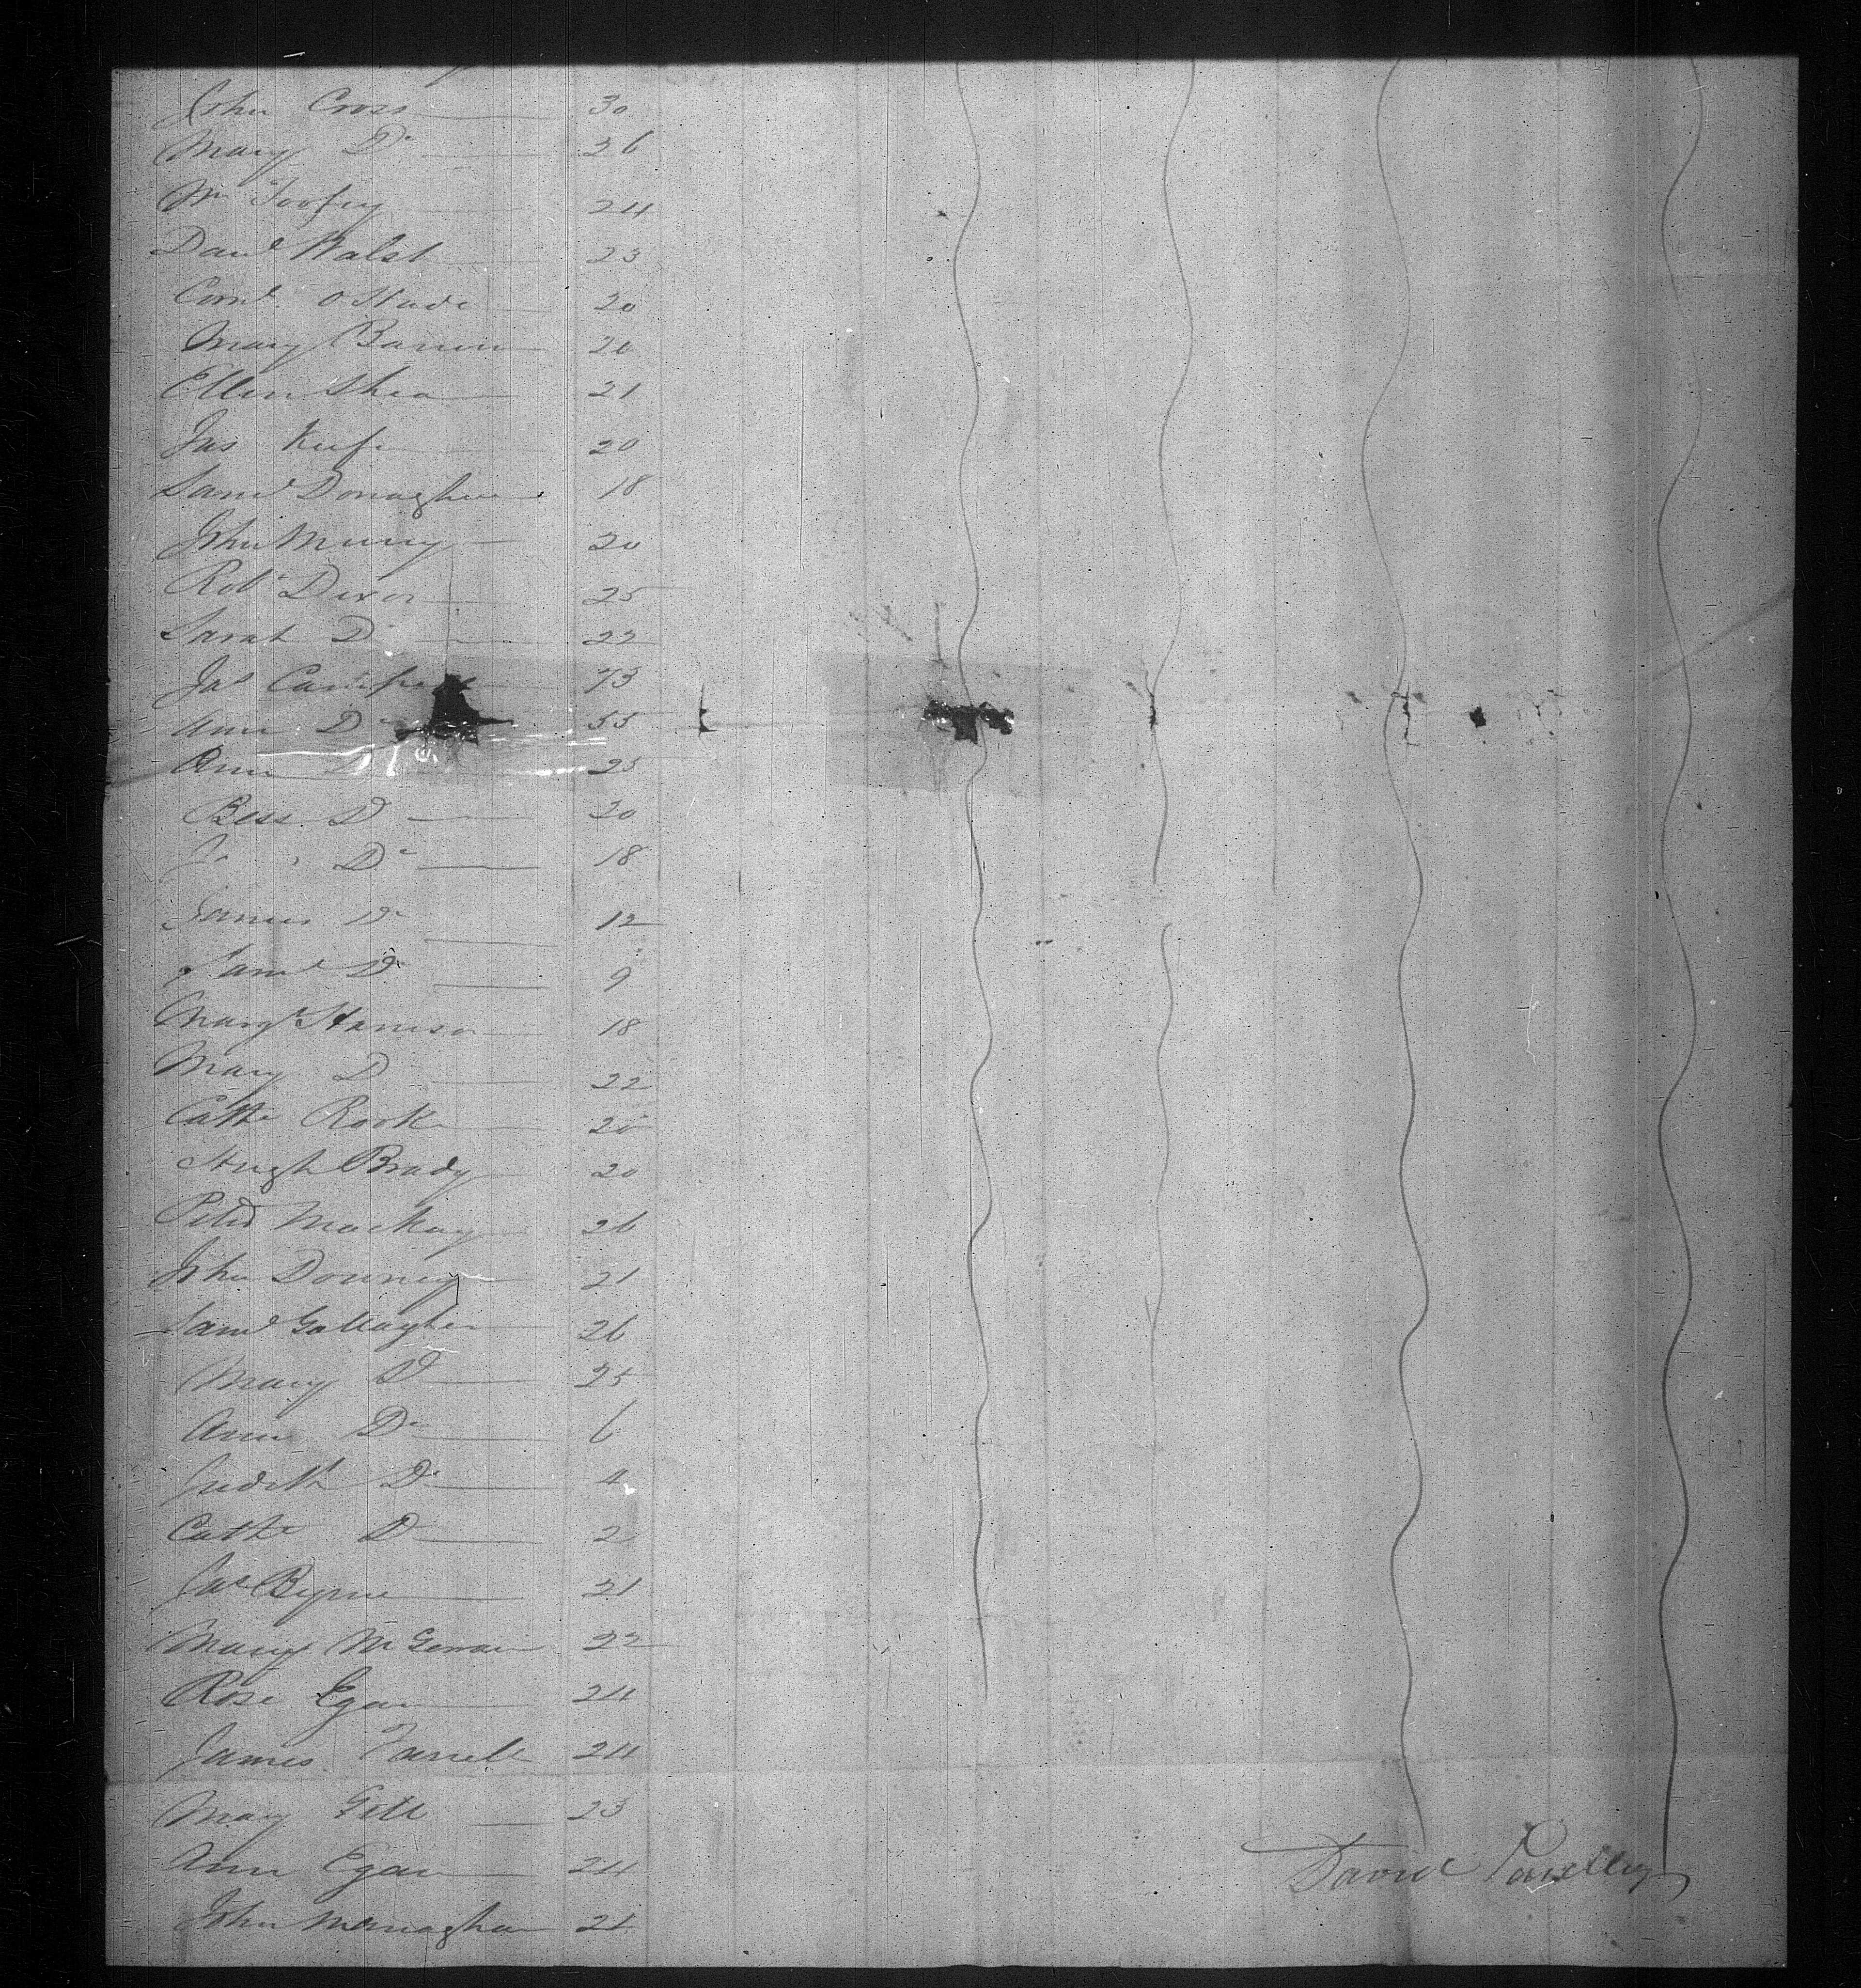 John Cross 30
Mary Do 26
Wm 24
Danl Walsh 23
Corns. 20
Mary Barron 20
Ellen Shea 21
Jas Keefe 20
Saml Donaghue 18
John Murry 20
Robt Dixon 25
Sarah Do 22
Jas 73
Ann Do 55
Ann 23
Bess Do 20
Do 18
James Do 12
Saml Do 9
Margt Harrison 18
Mary D 22
Cathe Rook 20
Hugh Brady 20
Peter Mackay 26
John Downey 21
Saml Gallagher 26
Mary Do 25
Ann Do 6
Judith Do 4
Cathe D 2
Jas Byrne 21
22
Rose Egan 24
James Farrell 24
Mary Gill 23
Ann Egan 24
David
John Monaghan 21